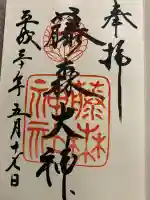 奉拝
藤森大神
平成三十年五月十八日
藤森
神社